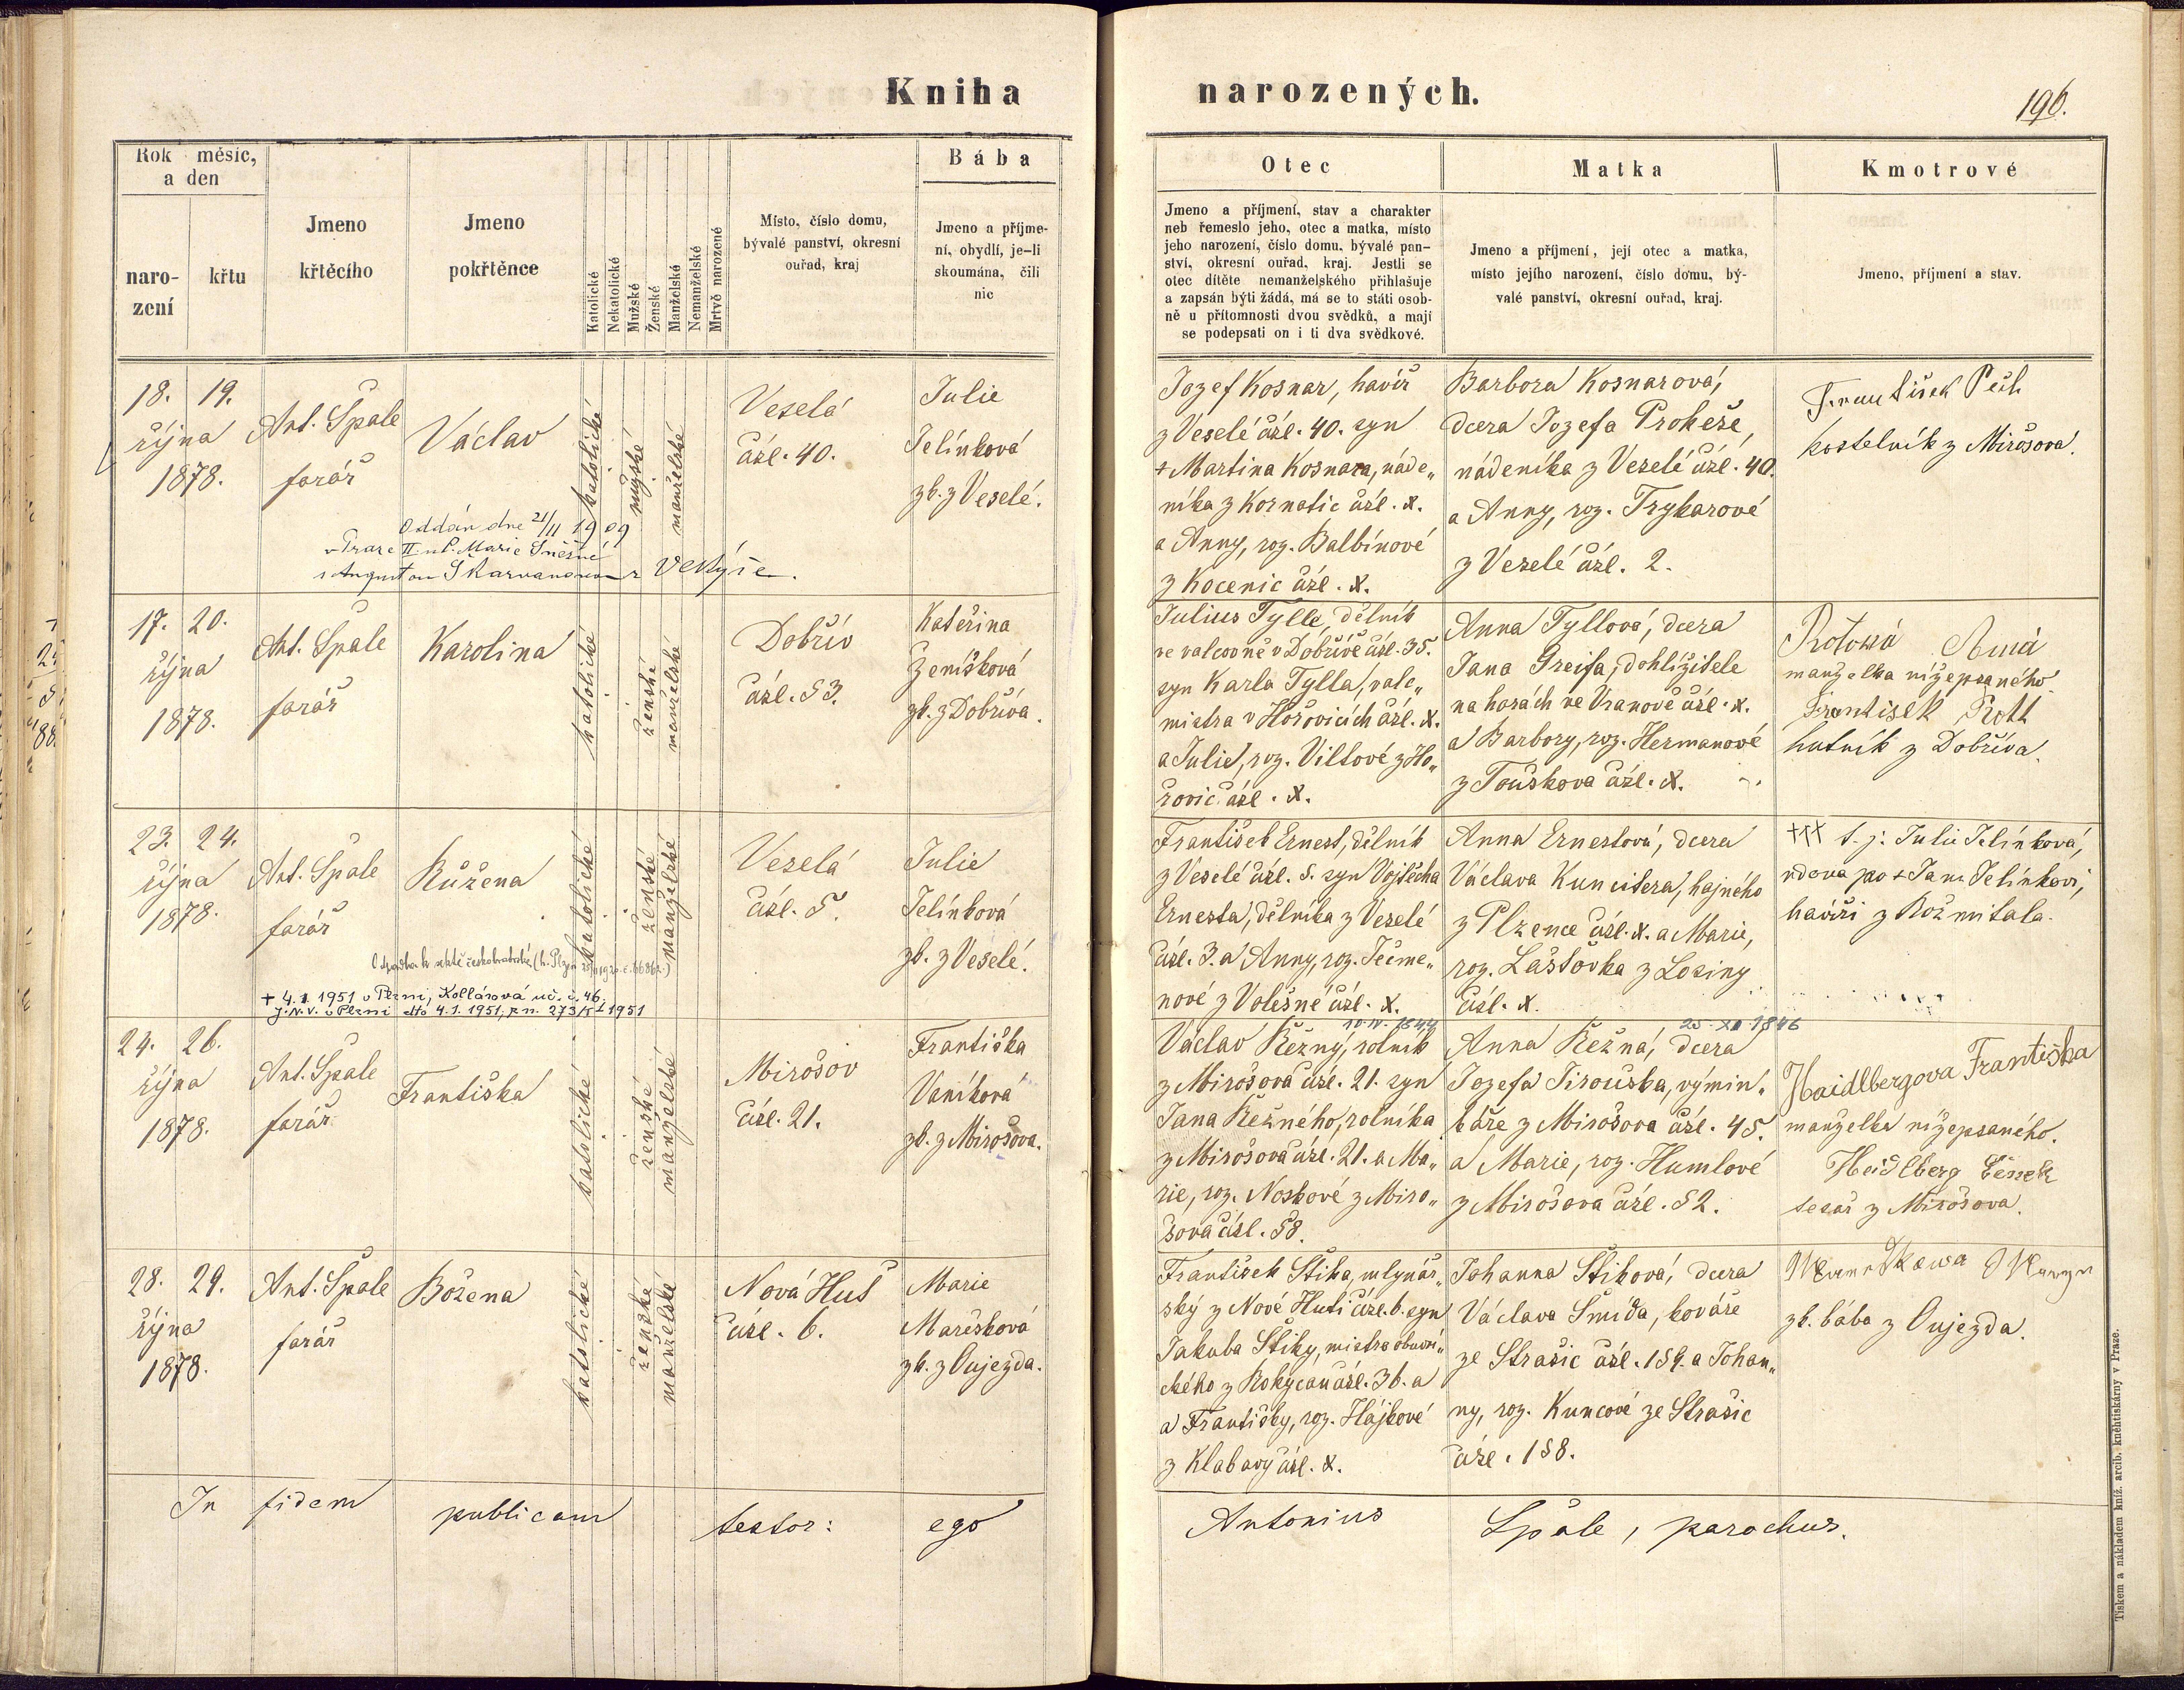 Kniha narozených.
196.
Rok měsíc,
a den
naro-
zení
křtu
Jmeno
křtěcího
Jmeno
pokřtěnce
Katolické
Nekatolické
Mužské
Ženské
Manželské
Nemanželské
Mrtvě narozené
Místo, číslo domu,
bývalé panství, okresní
ouřad, kraj
Bába
Jmeno a příjme-
ní, obydlí, je-li
skoumána, čili
nic
Otec
Jmeno a příjmení, stav a charakter
neb řemeslo jeho, otec a matka, místo
jeho narození, číslo domu, bývalé pan-
ství, okresní ouřad, kraj. Jestli se
otec dítěte nemanželského přihlašuje
a zapsán býti žádá, má se to státi osob-
ně u přítomnosti dvou svědků, a mají
se podepsati on i ti dva svědkové.
Matka
Jmeno a příjmení, její otec a matka,
místo jejího narození, číslo domu, bý-
valé panství, okresní ouřad, kraj.
Kmotrové
Jmeno, příjmení a stav.
18. 19.
října
1878.
Ant. Špale
farář
Václav
katolické
mužské
manželské
Veselá
čísl. 40.
Julie
Jelínková
zk. z Veselé.
Oddán dne 21/II 1909
v Praze II. u P. Marie Sněžné
Jozef Kosnar, havíř
z Veselé čísl. 40. syn
+ Martina Kosnara, náde„
níka z Kornatic čísl. X.
a Anny, roz. Balbínové
z Kocenic čísl. X.
Barbora Kosnarová,
dcera Jozefa Prokeše,
nádeníka z Veselé čísl. 40.
a Anny, roz. Trykarové
z Veselé čísl. 2.
František Pech
kostelník z Mirošova.
17. 20.
října
1878.
Ant. Špale
farář
Karolina
katolické
ženské
manželské
Dobřív
čísl. 53.
Kateřina
Zeníšková
zk. z Dobříva.
Julius Tylle, dělník
ve valcovně v Dobřívě čísl. 35.
syn Karla Tylla, valc„
mistra v Hořovicích čísl. X.
a Julie, roz. Viltové z Ho„
řovic čísl. X.
Anna Tyllová, dcera
Jana Greifa, dohlížitele
na horách ve Vranově čísl. X.
a Barbory, roz. Hermanové
z Touškova čísl. X.
manželka nížepsaného
František Rott
hutník z Dobříva.
23. 24.
října
1878.
Ant. Špale
farář
Růžena
katolické
ženské
manželské
Veselá
čísl. 5.
Julie
Jelínková
zk. z Veselé.
+ 4.1.1951 v Plzni, Kollárová ul. č. 46,
J.N.V. v Plzni dto 4.1.1951, zn. 273/KI 1951
František Ernest, dělník
z Veselé čísl. 5. syn Vojtěcha
Ernesta, dělníka z Veselé
čísl. 3. a Anny, roz. Ječme„
nové z Volešné čísl. X.
Anna Ernestová, dcera
Václava Kuncitera, hajného
z Plzence čísl. X. a Marie,
roz. Lástovka z Losiny
čísl. X.
+++ t. j. Julie Jelínková,
vdova po + Janu Jelínkovi,
havíři z Rožmitala.
24. 26.
října
1878.
Ant. Špale
farář
Františka
katolické
ženské
manželské
Mirošov
čísl. 21.
Františka
Vaníková
zk. z Mirošova.
10.IV.1844
Václav Řežný, rolník
z Mirošova čísl. 21. syn
Jana Řežného, rolníka
z Mirošova čísl. 21. a Ma„
rie, roz. Noskové z Miro„
šova čísl. 58.
25.XII.1846
Anna Řežná, dcera
Jozefa Tirouška, výmin„
káře z Mirošova čísl. 45.
a Marie, roz. Humlové
z Mirošova čísl. 52.
Haidlbergova Františka
manželka nížepsaného.
Heidlberg Čeněk
tesař z Mirošova.
28. 29.
října
1878.
Ant. Špale
farář
Božena
katolické
ženské
manželské
Nová Huť
čísl. 6.
Marie
Marešková
zk. z Oujezda.
František Štika, mlynář„
ský z Nové Huti čísl. 6. syn
Jakuba Štiky, mistra obuvni„
ckého z Rokycan čísl. 36. a
a Františky, roz. Hájkové
z Klabavy čísl. X.
Johanna Štiková, dcera
Václava Šmída, kováře
ze Strašic čísl. 159. a Johan„
ny, roz. Kuncové ze Strašic
čísl. 158.
zk. bába z Oujezda.
In fidem publicam testor: ego Antonius Špale, parochus.
Tiskem a nákladem kníž. arcib. kněhtiskárny v Praze.